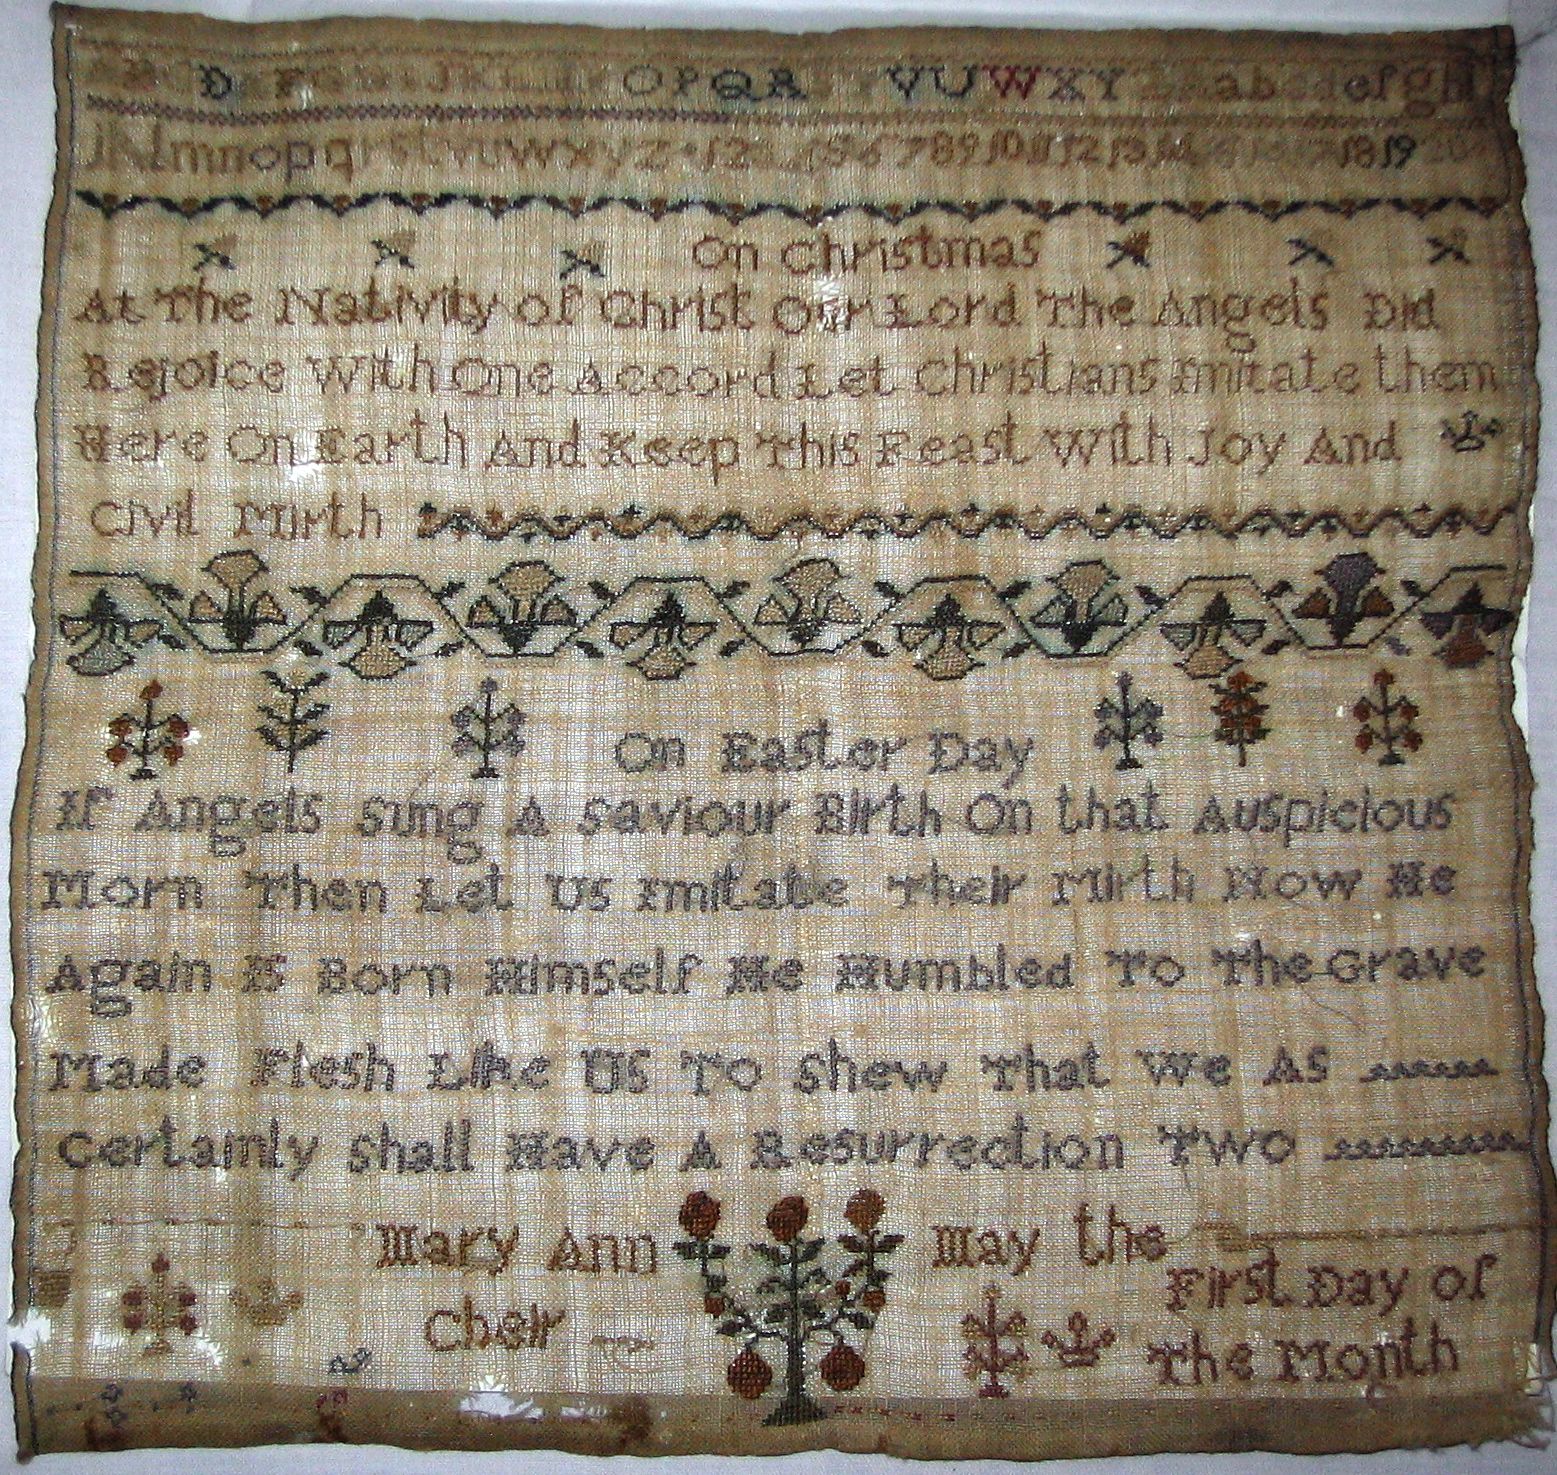 D F O P Q R V U W X Y a b c d e f g h
j k l m n o p q r s t v u w x y z 1 2 5 6 7 8 9 10 11 12 13 14 18 19 20
On Christmas
At The Nativity of Christ Our Lord The Angels Did
Rejoice With One Accord Let Christians Imitate them
Here On Earth And Keep This Feast With Joy And
Civil Mirth
On Easter Day
If Angels Sung A Saviour Birth On that Auspicious
Morn Then Let Us Imitate Their Mirth Now He
Again Is Born Himself He Humbled To The Grave
Made Flesh Like Us To Shew That We As
Certainly Shall Have A Resurrection Two
Mary Ann May the
Cheir First Day of
The Month